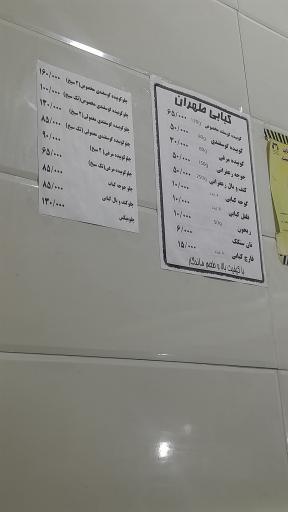 کبابی طهران
کوبیده گوسفندی مخصوص ۶۵/۰۰۰
کوبیده گوسفندی ۵۰/۰۰۰
کوبیده مرغی ۳۰/۰۰۰
جوجه زعفرانی ۵۰/۰۰۰
کتف و بال زعفرانی ۵۰/۰۰۰
گوجه کبابی ۱۰/۰۰۰
فلفل کبابی ۱۰/۰۰۰
زیتون ۱۰/۰۰۰
نان سنگک ۶/۰۰۰
قارچ کبابی ۱۵/۰۰۰
با کیفیت بالا و طعم ماندگار
چلوکوبیده گوسفندی مخصوص (۲ سیخ) ۱۶۰/۰۰۰
چلوکوبیده گوسفندی مخصوص (تک سیخ) ۱۰۰/۰۰۰
چلوکوبیده گوسفندی معمولی (۲ سیخ) ۱۳۰/۰۰۰
چلوکوبیده گوسفندی معمولی (تک سیخ) ۸۵/۰۰۰
چلوکوبیده مرغی (۲ سیخ) ۹۰/۰۰۰
چلوکوبیده مرغی (تک سیخ) ۶۵/۰۰۰
چلو جوجه کباب ۸۵/۰۰۰
چلوکتف و بال کبابی ۸۵/۰۰۰
چلومیکس ۱۳۰/۰۰۰